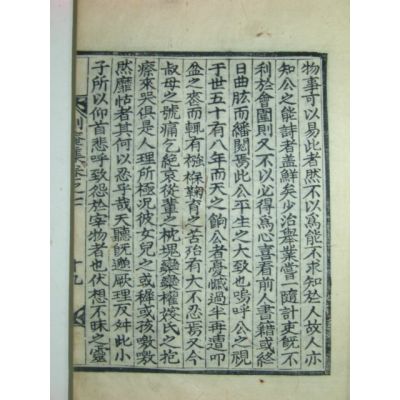 物事可以易此者然不以爲能不求知於人故人亦
知公之能詩者盖鮮矣少治舉業嘗一隨計吏旣不
利於會圍則又不以必得爲心喜看前人書籍或終
日曲肱而繙閱焉此公平生之大致也嗚呼公之視
于世五十有八年而天之餉公者憂慽過半再遭叩
盆之悲而輒有襁褓鞠育之苦殆有大不忍焉又今
叔母之號痛乞絶哀從輩之枕塊欒欒櫂姹氏之抱
瘵來哭俱是人理所極况彼女兒之或稺或孩噭噭
然靡怙者其何以忍乎哉天聽旣邈厥理反舛此小
子所以仰首悲呼致怨於宰物者也伏想不昧之靈
集卷之七 十九